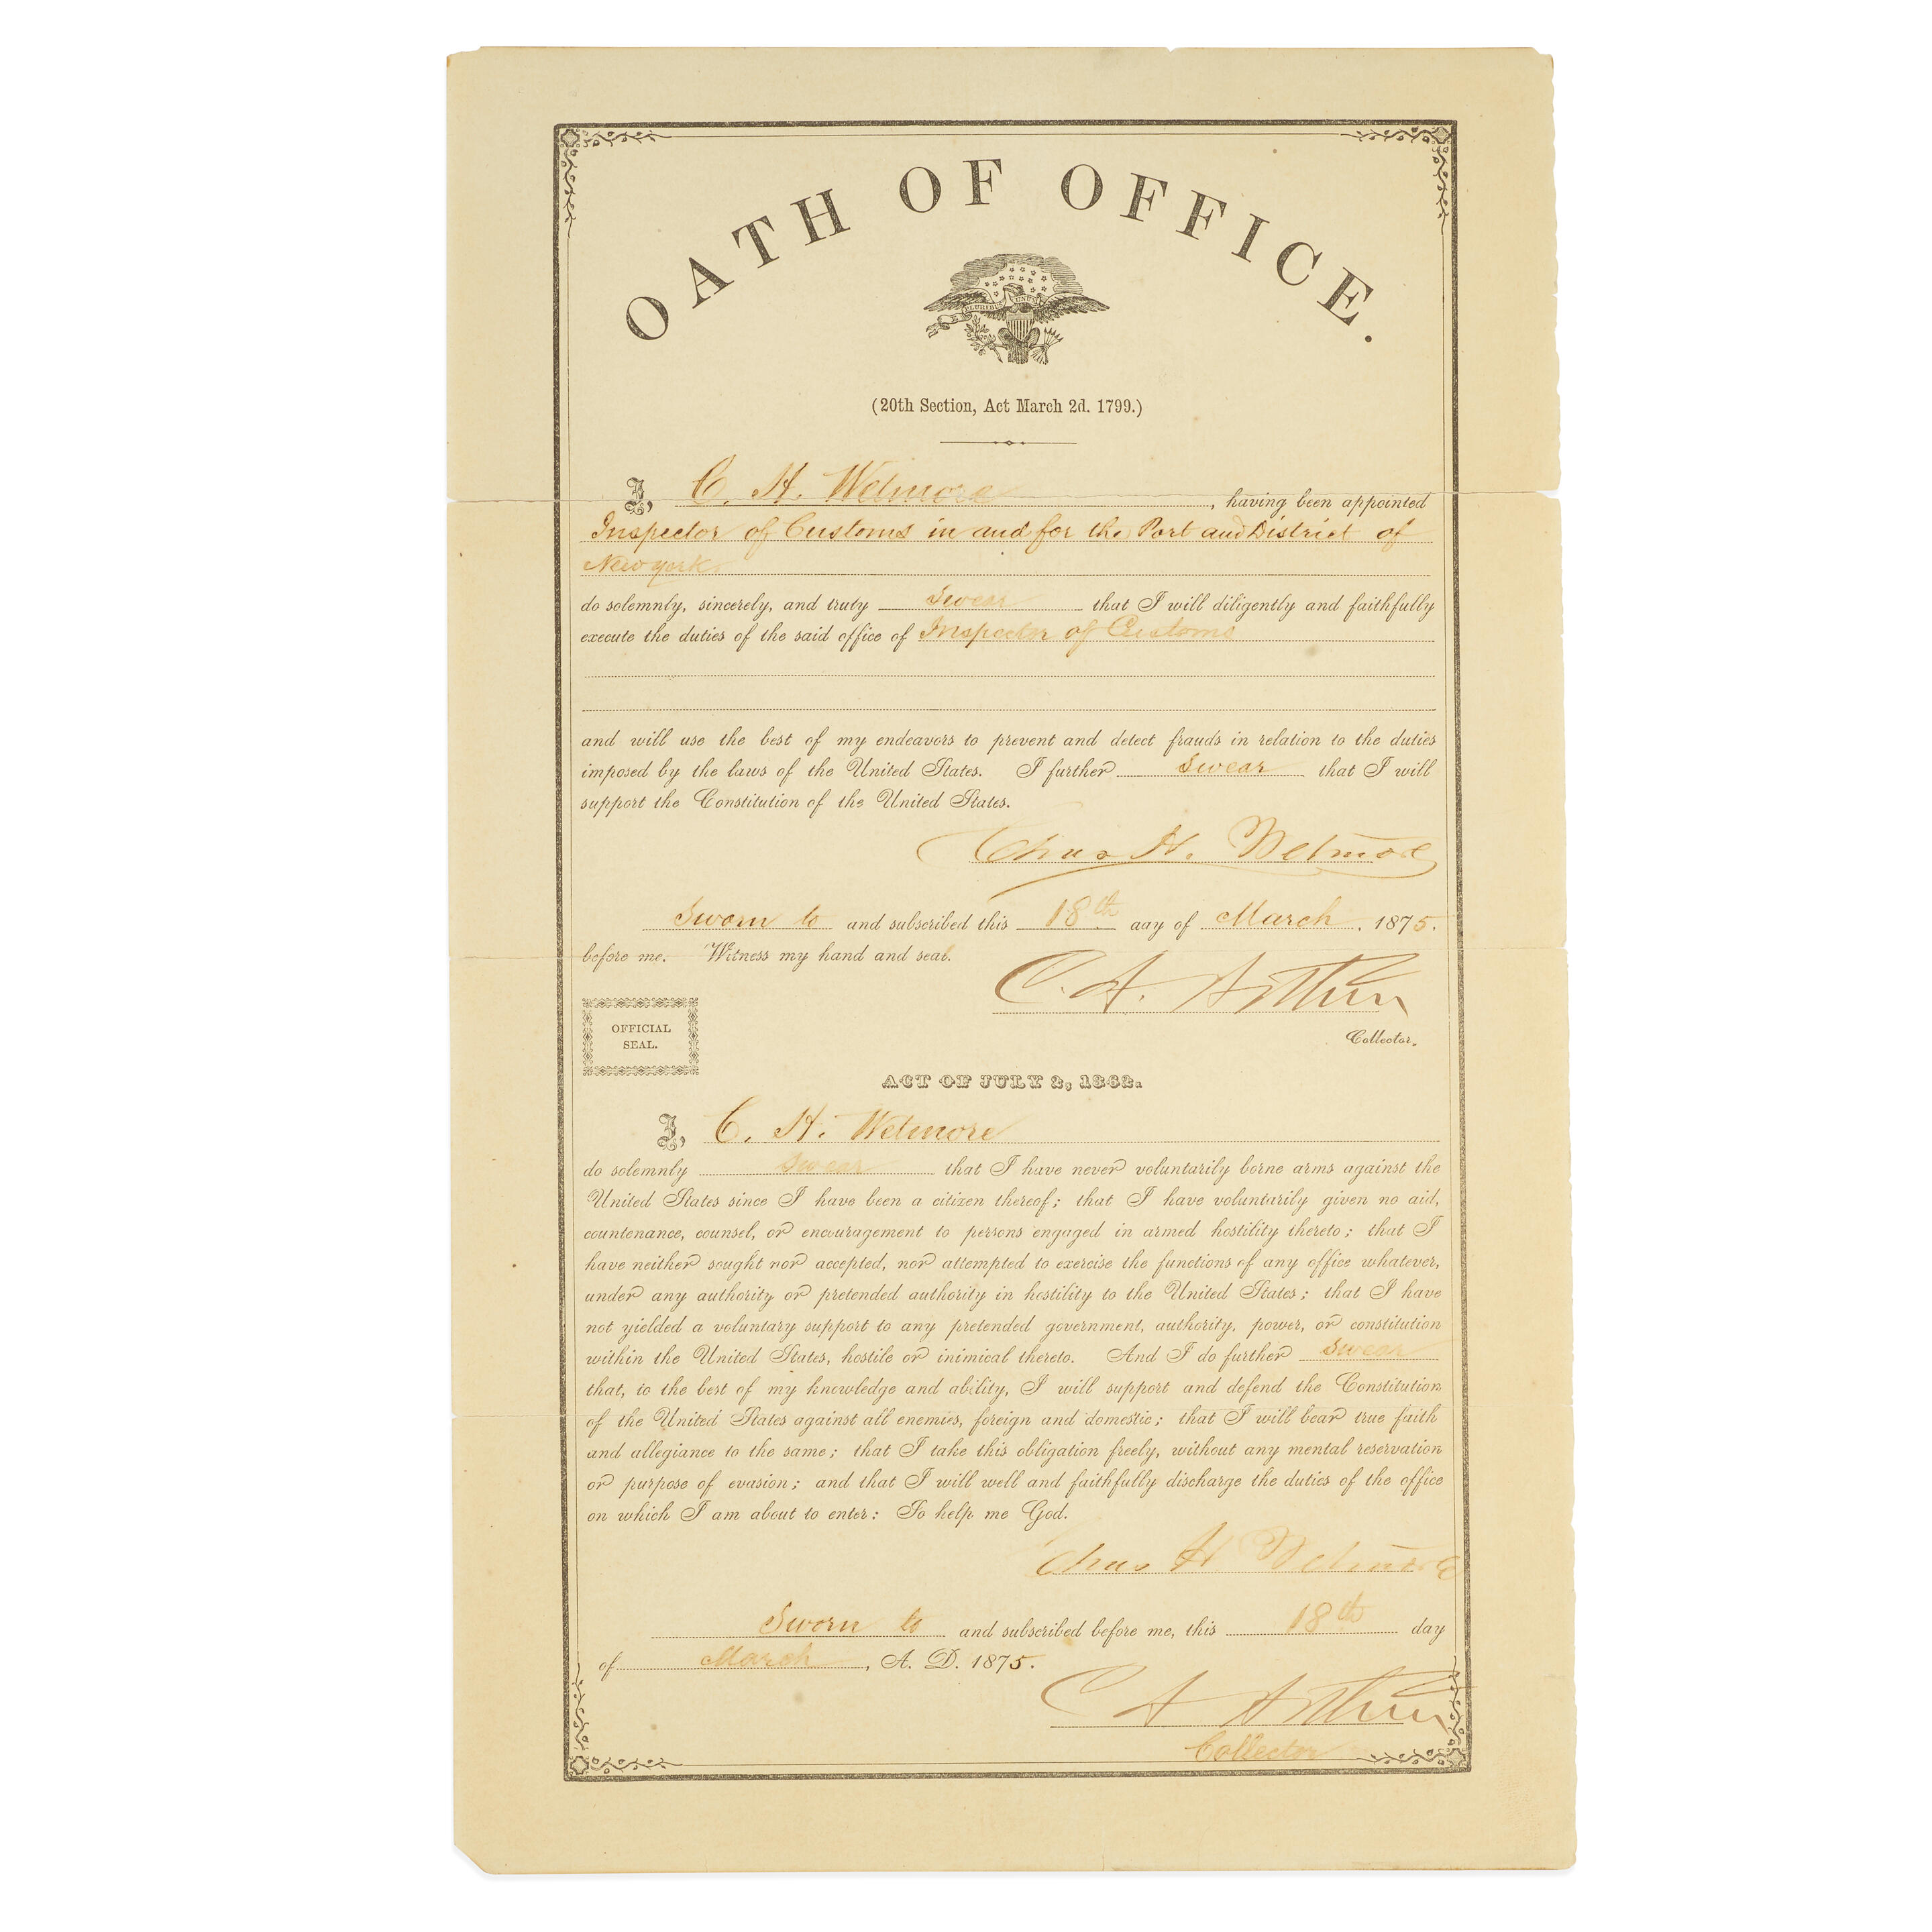 OATH OF OFFICE.
PLURIBUS UNUM
(20th Section, Act March 2d. 1799.)
I, C. H. Wetmore, having been appointed
Inspector of Customs in and for the Port and District of
New york
do solemnly, sincerely, and truly swear that I will diligently and faithfully
execute the duties of the said office of Inspector of Customs
and will use the best of my endeavors to prevent and detect frauds in relation to the duties
imposed by the laws of the United States. I further swear that I will
support the Constitution of the United States.
Chas H. Wetmore
Sworn to and subscribed this 18th day of March, 1875.
before me. Witness my hand and seal.
C. A. Arthur
OFFICIAL
SEAL.
Collector.
ACT OF JULY 2, 1862.
I, C. H. Wetmore
do solemnly swear that I have never voluntarily borne arms against the
United States since I have been a citizen thereof; that I have voluntarily given no aid,
countenance, counsel, or encouragement to persons engaged in armed hostility thereto; that I
have neither sought nor accepted, nor attempted to exercise the functions of any office whatever,
under any authority or pretended authority in hostility to the United States; that I have
not yielded a voluntary support to any pretended government, authority, power, or constitution
within the United States, hostile or inimical thereto. And I do further swear
that, to the best of my knowledge and ability, I will support and defend the Constitution
of the United States against all enemies, foreign and domestic; that I will bear true faith
and allegiance to the same; that I take this obligation freely, without any mental reservation
or purpose of evasion; and that I will well and faithfully discharge the duties of the office
on which I am about to enter: So help me God.
Chas H Wetmore
Sworn to and subscribed before me, this 18th day
of March, A. D. 1875.
C A Arthur
Collector